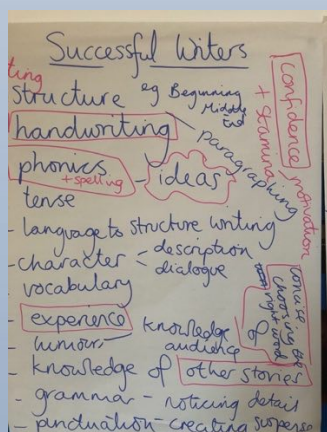 Successful Writers
ting
structure eg Beginning
Middle
End
handwriting
paragraphing
confidence
+ stamina
motivation
phonics
+ spelling
- ideas
tense
- language to structure writing
- character - description
dialogue
- vocabulary
concise
choosing the
right word
experience
- humour - knowledge of
audience
- knowledge of other stories
- grammar - noticing detail
- punctuation - creating suspense